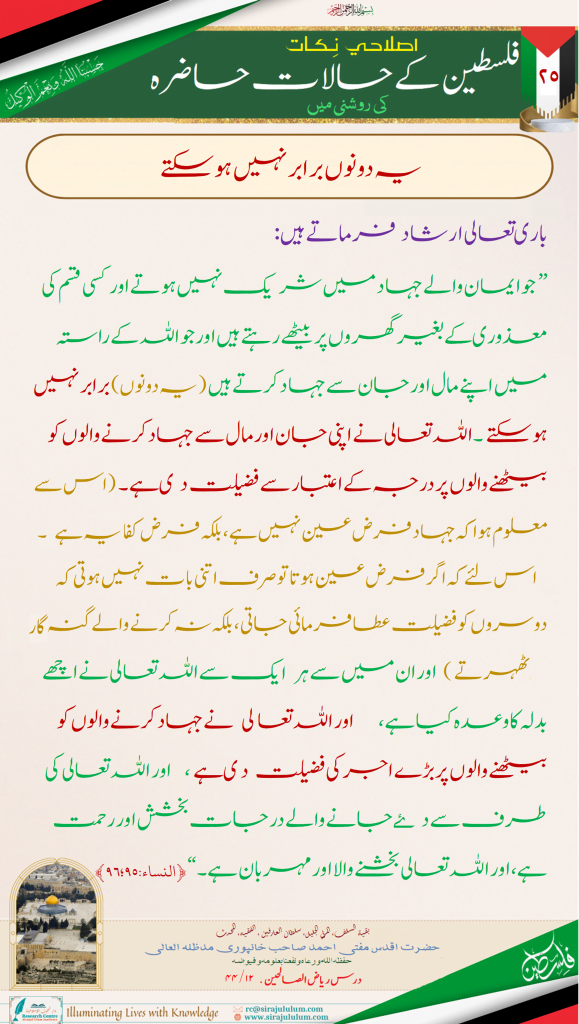 بسم اللہ الرحمن الرحیم
حَسْبُنَا اللّٰهُ وَنِعْمَ الْوَكِيْلُ
اصلاحی نِکات
فلسطین کے حالات حاضرہ
کی روشنی میں
۲۵
یہ دونوں برابر نہیں ہو سکتے
باری تعالی ارشاد فرماتے ہیں:
”جو ایمان والے جہاد میں شریک نہیں ہوتے اور کسی قسم کی
معذوری کے بغیر گھروں پر بیٹھے رہتے ہیں اور جو اللہ کے راستہ
میں اپنے مال اور جان سے جہاد کرتے ہیں (یہ دونوں) برابر نہیں
ہو سکتے ۔ اللہ تعالی نے اپنی جان اور مال سے جہاد کرنے والوں کو
بیٹھنے والوں پر درجہ کے اعتبار سے فضیلت دی ہے۔ (اس سے
معلوم ہوا کہ جہاد فرض عین نہیں ہے، بلکہ فرض کفایہ ہے ۔
اس لئے کہ اگر فرض عین ہوتا تو صرف اتنی بات نہیں ہوتی کہ
دوسروں کو فضیلت عطا فرمائی جاتی، بلکہ نہ کرنے والے گنہ گار
ٹھہرتے ) اور ان میں سے ہر ایک سے اللہ تعالی نے اچھے
بدلہ کا وعدہ کیا ہے، اور اللہ تعالی نے جہاد کرنے والوں کو
بیٹھنے والوں پر بڑے اجر کی فضیلت دی ہے ، اور اللہ تعالی کی
طرف سے دئے جانے والے درجات بخشش اور رحمت
ہے، اور اللہ تعالی بخشنے والا اور مہربان ہے۔“ ﴿النساء:۹۵؛۹۶﴾
حضرت اقدس مفتی احمد صاحب خانپوری مدظلہ العالی
حفظه الله ورعاه ونفعنا بعلومه وفيوضه
درس ریاض الصالحین. ۱۲/ ۴۴
فلسطین
Research Centre
Illuminating Lives with Knowledge
rc@sirajululum.com
www.sirajululum.com